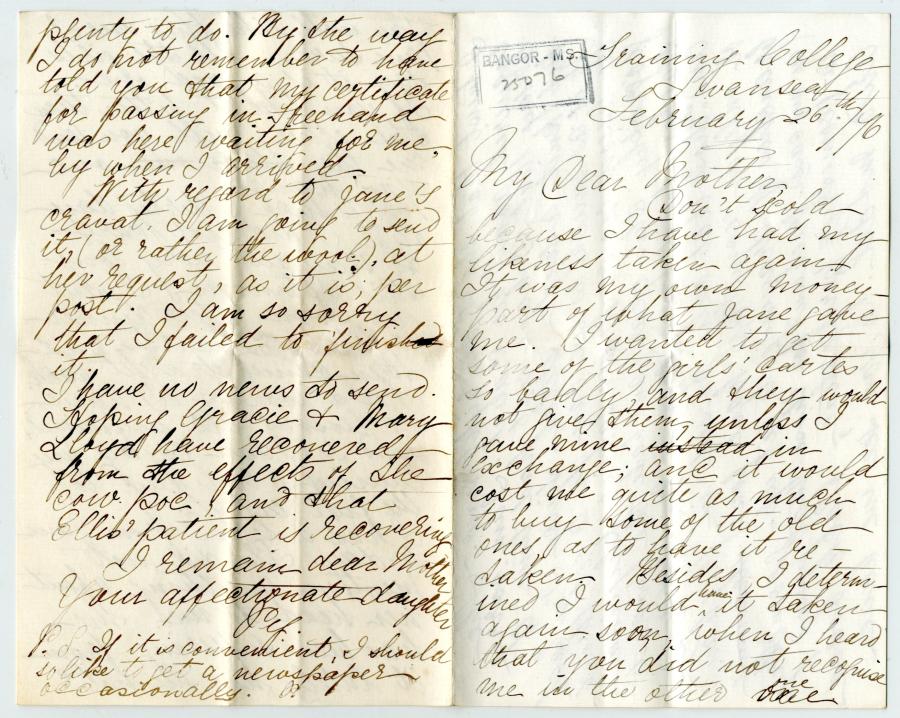 BANGOR - MS.
25076
Training College
Swansea
February 26th /76
My Dear Mother,
Don't scold
because I have had my
likeness taken again
It was my own money
part of what Jane gave
me. I wanted to get
some of the girls' cartes
so badly, and they would
not give them, unless I
gave mine instead in
exchange; and it would
cost me quite as much
to buy some of the old
ones, as to have it re-
taken. Besides, I determ-
ined I would have it taken
again soon, when I heard
that you did not recognise
me in the other one
plenty to do. By the way
I do not remember to have
told you that my certificate
for passing in Freehand
was here waiting for me
by when I arrived.
With regard to Jane's
cravat, I am going to send
it, (or rather the wool), at
her request, as it is, per
post. I am so sorry
that I failed to finish
it.
I have no news to send.
Hoping Gracie & Mary
Lloyd have recovered
from the effects of the
cow poc, and that
Ellis' patient is recovering
I remain dear Mother
Your affectionate daughter
P.S. If it is convenient, I should
so like to get a newspaper
occasionally.